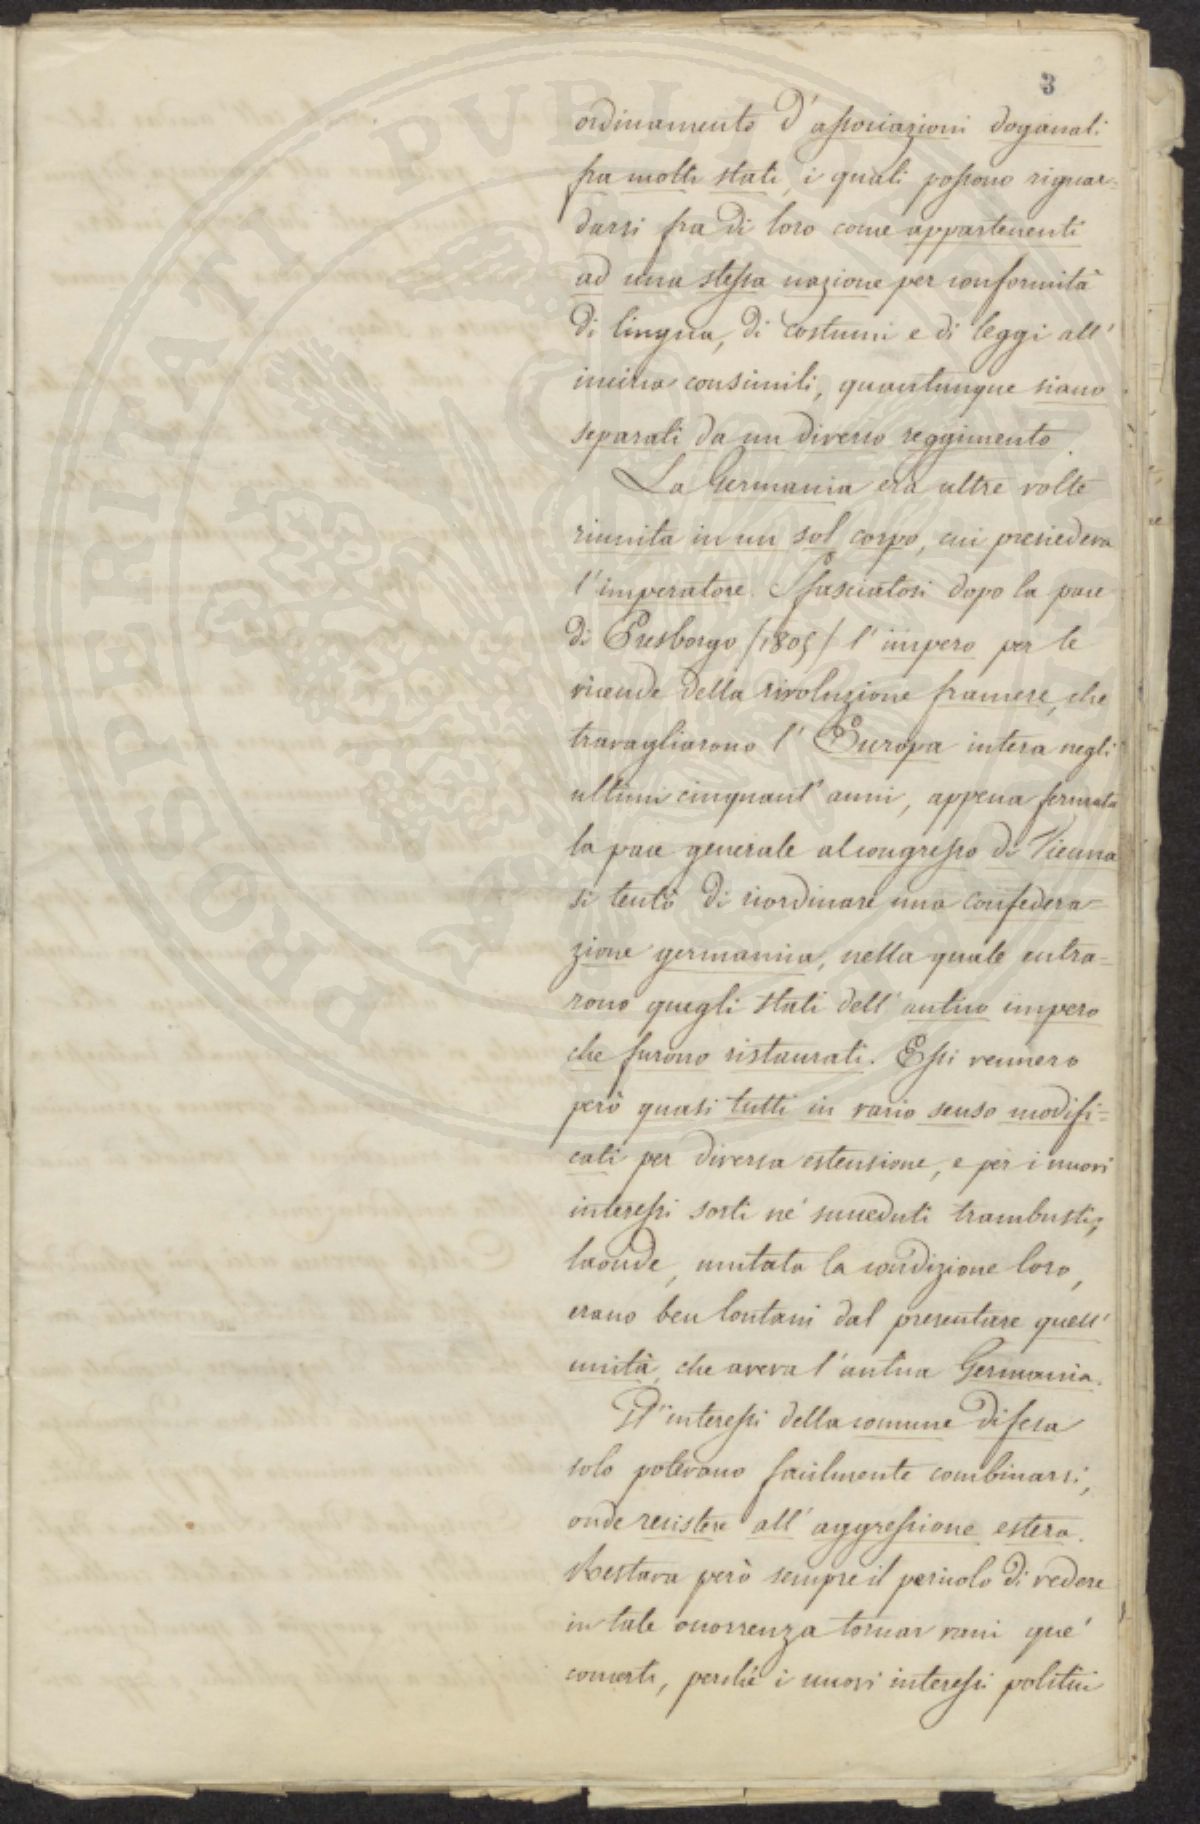 3
ordinamento d'associazioni doganali
fra molti stati, i quali possono riguar-
darsi fra di loro come appartenenti
ad una stessa nazione per conformità
di lingua, di costumi e di leggi all'
incirca consimili, quantunque siano
separati da un diverso reggimento.
La Germania era altre volte
riunita in un sol corpo, cui presiedeva
l'imperatore. Sfasciatosi dopo la pace
di Presborgo (1805) l'impero per le
vicende della rivoluzione francese, che
travagliarono l'Europa intera negli
ultimi cinquant'anni, appena fermata
la pace generale al congresso di Vienna
si tentò di riordinare una confedera=
zione germanica, nella quale entra=
rono quegli stati dell'antico impero
che furono ristaurati. Essi vennero
però quasi tutti in vario senso modifi=
cati per diversa estensione, e per i nuovi
interessi sorti ne' succeduti trambusti;
laonde, mutata la condizione loro,
erano ben lontani dal presentare quell'
unità, che aveva l'antica Germania.
Gl'interessi della comune difesa
solo potevano facilmente combinarsi,
onde resistere all'aggressione estera.
Restava però sempre il pericolo di vedere
in tale occorrenza tornar vani que'
concerti, perchè i nuovi interessi politici
PROSPERITATI PVBLICAE